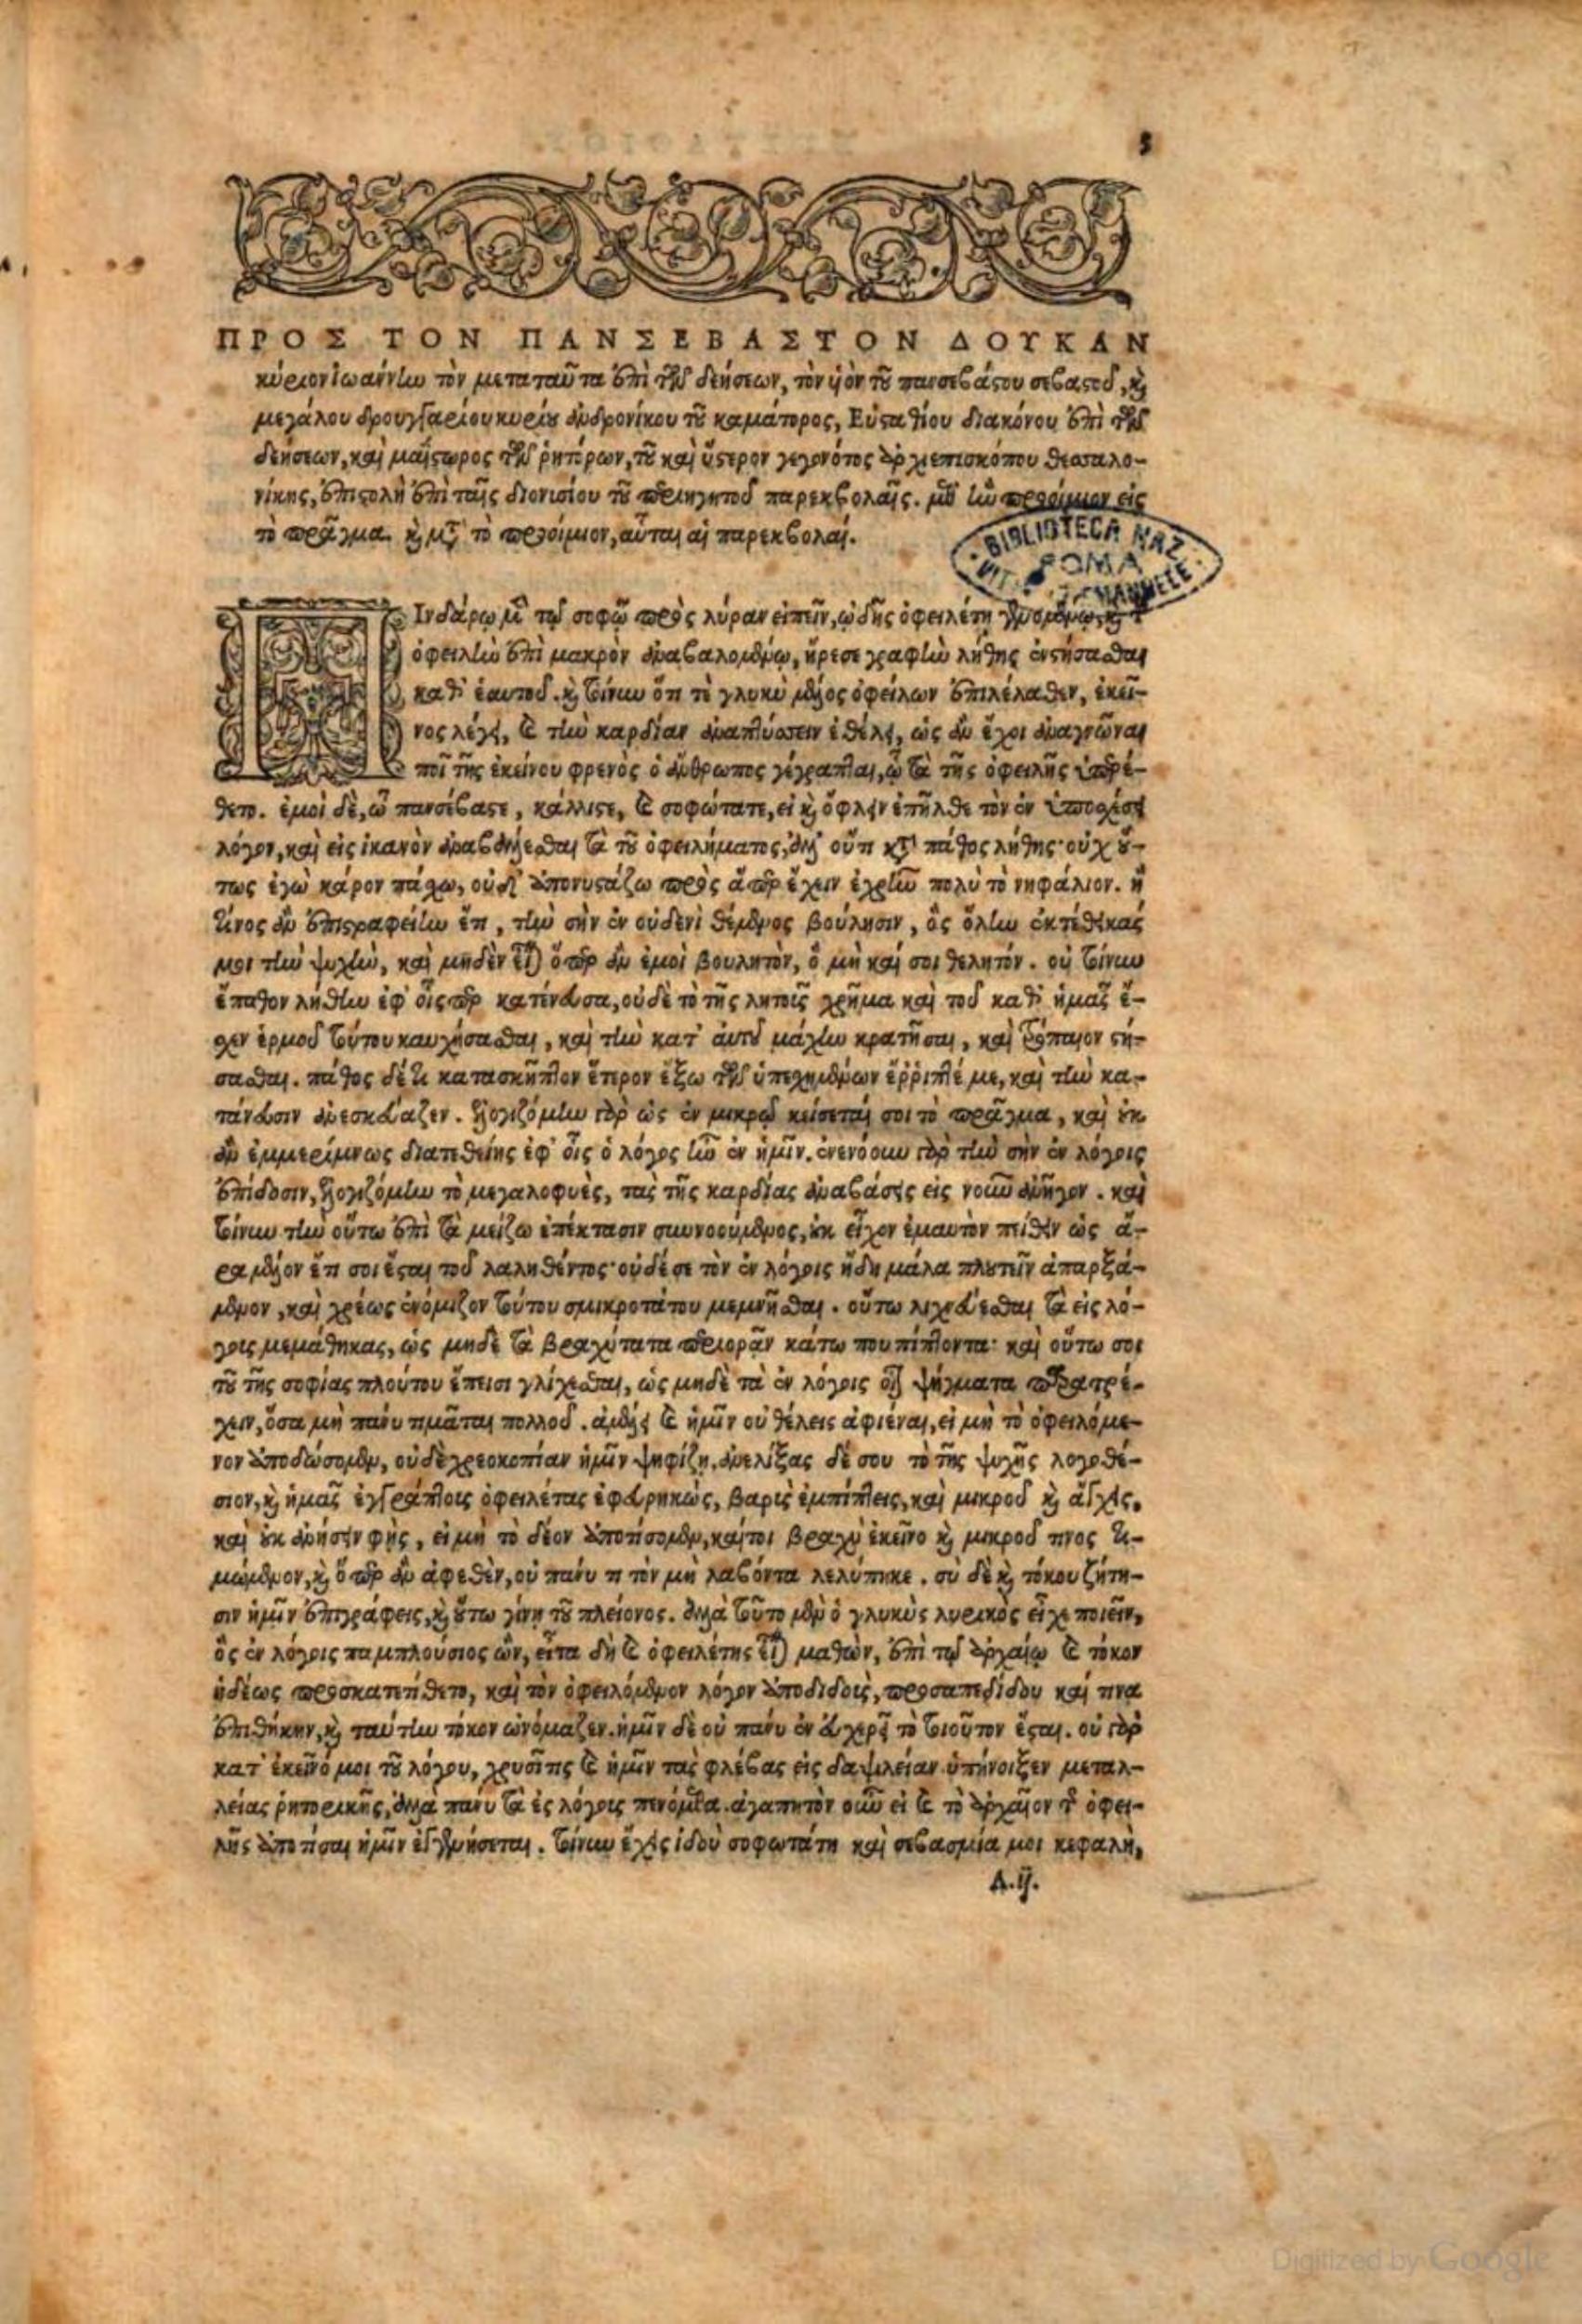 5
ΠΡΟΣ ΤΟΝ ΠΑΝΣΕΒΑΣΤΟΝ ΔΟΥΚΑΝ
κύριον ἰωάννην τὸν μεταταῦτα ἐπὶ τῶν δεήσεων, τὸν ὑιὸν τοῦ πανσεβάστου σεβαστοῦ, καὶ
μεγάλου δρουγγαρίου κυρίου ἀνδρονίκου τοῦ καμάτηρος, Εὐσταθίου διακόνου ἐπὶ τῶν
δεήσεων, καὶ μαΐστωρος τῶν ῥητόρων, τοῦ καὶ ὕστερον γεγονότος ἀρχιεπισκόπου θεσσαλο-
νίκης, ἐπιστολὴ ἐπὶ ταῖς διονισίου τοῦ περιηγητοῦ παρεκβολαῖς. μεθ' ἣν προοίμιον εἰς
τὸ πρᾶγμα. καὶ μετὰ τὸ προοίμιον, αὗται αἱ παρεκβολαί.
BIBLIOTECA NAZ
ROMA
VIT. EMANUELE
Ινδάρῳ μὲν τῷ σοφῷ πρὸς λύραν εἰπεῖν, ᾠδῆς ὀφειλέτῃ γενομένῳ, καὶ τὴν
ὀφειλὴν ἐπὶ μακρὸν ἀναβαλομένῳ, ἤρεσε γραφὴν λήθης ἐνστήσασθαι
καθ' ἑαυτοῦ. καὶ τοίνυν ὅτι τὲ γλυκὺ μέλος ὀφείλων ἐπιλέλαθεν, ἐκεῖ-
νος λέγει, καὶ τὴν καρδίαν ἀναπτύσσειν ἐθέλει, ὡς ἂν ἔχοι ἀναγνῶναι
ποῖ τῆς ἐκείνου φρενὸς ὁ ἄνθρωπος γέγραπται, ᾧ τὰ τῆς ὀφειλῆς ὑπερέ-
θετο. ἐμοὶ δὲ, ὦ πανσέβαστε, κάλλιστε, καὶ σοφώτατε, εἰ καὶ ὄφλειν ἐπῆλθε τὸν ἐν ὑποσχέσει
λόγον, καὶ εἰς ἱκανὸν ἀναβάλλεσθαι τὰ τοῦ ὀφειλήματος, ἀλλ' οὔτι κατὰ πάθος λήθης· οὐχ οὕ-
τως ἐγὼ κάρον πάσχω, οὐδ' ἀπονυστάζω πρὸς ἅπερ ἔχειν ἐχρῆν πολὺ τὸ νηφάλιον. ἢ
τίνος ἂν ἐπιστραφείην ἔτι, τὴν σὴν ἐν οὐδενὶ θέμενος βούλησιν, ὃς ὅλην ἐκτέθεικάς
μοι τὴν ψυχὴν, καὶ μηδὲν εἶναι ὅπερ ἂν ἐμοὶ βουλητὸν, ὃ μὴ καί σοι θελητόν. οὐ τοίνυν
ἔπαθον λήθην ἐφ' οἷς περ κατένευσα, οὐδὲ τὸ τῆς λητοῖς χρῆμα καὶ τοῦ καθ' ἡμᾶς ἔ-
χεν ἑρμοῦ τούτου καυχήσασθαι, καὶ τὴν κατ' αὐτοῦ μάχην κρατῆσαι, καὶ τρόπαιον στή-
σασθαι. πάθος δέ τι κατασκῆπτον ἕτερον ἔξω τῶν ὑπεσχημένων ἔῤῥιπτέ με, καὶ τὴν κα-
τάνευσιν ἀνεσκεύαζεν. ἐλογιζόμην γὰρ ὡς ἐν μικρῷ κείσεταί σοι τὸ πρᾶγμα, καὶ οὐκ
ἂν ἐμμερίμνως διατεθείης ἐφ' οἷς ὁ λόγος ἦν ἐν ἡμῖν. ἐνενόουν γὰρ τὴν σὴν ἐν λόγοις
ἐπίδοσιν, ἐλογιζόμην τὸ μεγαλοφυὲς, τὰς τῆς καρδίας ἀναβάσεις εἰς νοῦν ἀνῆγον. καὶ
τοίνυν τὴν οὕτω ἐπὶ τὰ μείζω ἐπέκτασιν συννοούμενος, οὐκ εἶχον ἐμαυτὸν πείθειν ὡς ἄ-
ρα μέλον ἔτι σοι ἔσται τοῦ λαληθέντος· οὐδέ σε τὸν ἐν λόγοις ἤδη μάλα πλουτεῖν ἀπαρξά-
μενον, καὶ χρέως ἐνόμιζον τούτου σμικροτάτου μεμνῆσθαι. οὕτω λιχνεύεσθαι τὰ εἰς λό-
γοις μεμάθηκας, ὡς μηδὲ τὰ βραχύτατα περιορᾶν κάτω που πίπτοντα· καὶ οὕτω σοι
τοῦ τῆς σοφίας πλούτου ἔπεισι γλίχεσθαι, ὡς μηδὲ τὰ ἐν λόγοις οἷον ψήγματα παρατρέ-
χειν, ὅσα μὴ πάνυ τιμᾶται πολλοῦ. ἀμέλει καὶ ἡμῖν οὐ θέλεις ἀφιέναι, εἰ μὴ τὸ ὀφειλόμε-
νον ἀποδώσομεν, οὐδὲ χρεοκοπίαν ἡμῖν ψηφίζῃ. ἀνελίξας δέ σου τὸ τῆς ψυχῆς λογοθέ-
σιον, καὶ ἡμᾶς ἐγγράπτοις ὀφειλέτας ἐφευρηκὼς, βαρὺς ἐμπίπτεις, καὶ μικροῦ καὶ ἄγχεις,
καὶ οὐκ ἀνήσειν φῂς, εἰ μὴ τὸ δέον ἀποτίσομεν, καίτοι βραχὺ ἐκεῖνο καὶ μικροῦ τινος τι-
μώμενον, καὶ ὅπερ ἂν ἀφεθὲν, οὐ πάνυ τι τὸν μὴ λαβόντα λελύπηκε. σὺ δὲ καὶ τόκου ζήτη-
σιν ἡμῖν ἐπιγράφεις, καὶ οὕτω γίνῃ τοῦ πλείονος. ἀλλὰ τοῦτο μὲν ὁ γλυκὺς λυρικὸς εἶχε ποιεῖν,
ὃς ἐν λόγοις παμπλούσιος ὢν, εἶτα δὴ καὶ ὀφειλέτης εἶναι μαθὼν, ἐπὶ τῷ ἀρχαίῳ καὶ τόκον
ἡδέως προσκατετίθετο, καὶ τὸν ὀφειλόμενον λόγον ἀποδιδοὺς, προσαπεδίδου καί τινα
ἐπιθήκην, καὶ ταύτην τόκον ὠνόμαζεν. ἡμῖν δὲ οὐ πάνυ ἐν εὐχερεῖ τὸ τοιοῦτον ἔσται. οὐ γὰρ
κατ' ἐκεῖνό μοι τοῦ λόγου, χρυσῖτις καὶ ἡμῖν τὰς φλέβας εἰς δαψιλείαν ὑπήνοιξεν μεταλ-
λείας ῥητορικῆς, ἀλλὰ πάνυ τὰ ἐς λόγοις πενόμεθα. ἀγαπητὸν οὖν εἰ καὶ τὸ ἀρχαῖον τῆς ὀφει-
λῆς ἀποτῖσαι ἡμῖν ἐγγενήσεται. τοίνυν ἔχεις ἰδοὺ σοφωτάτη καὶ σεβασμία μοι κεφαλὴ,
A.ij.
Digitized by Google